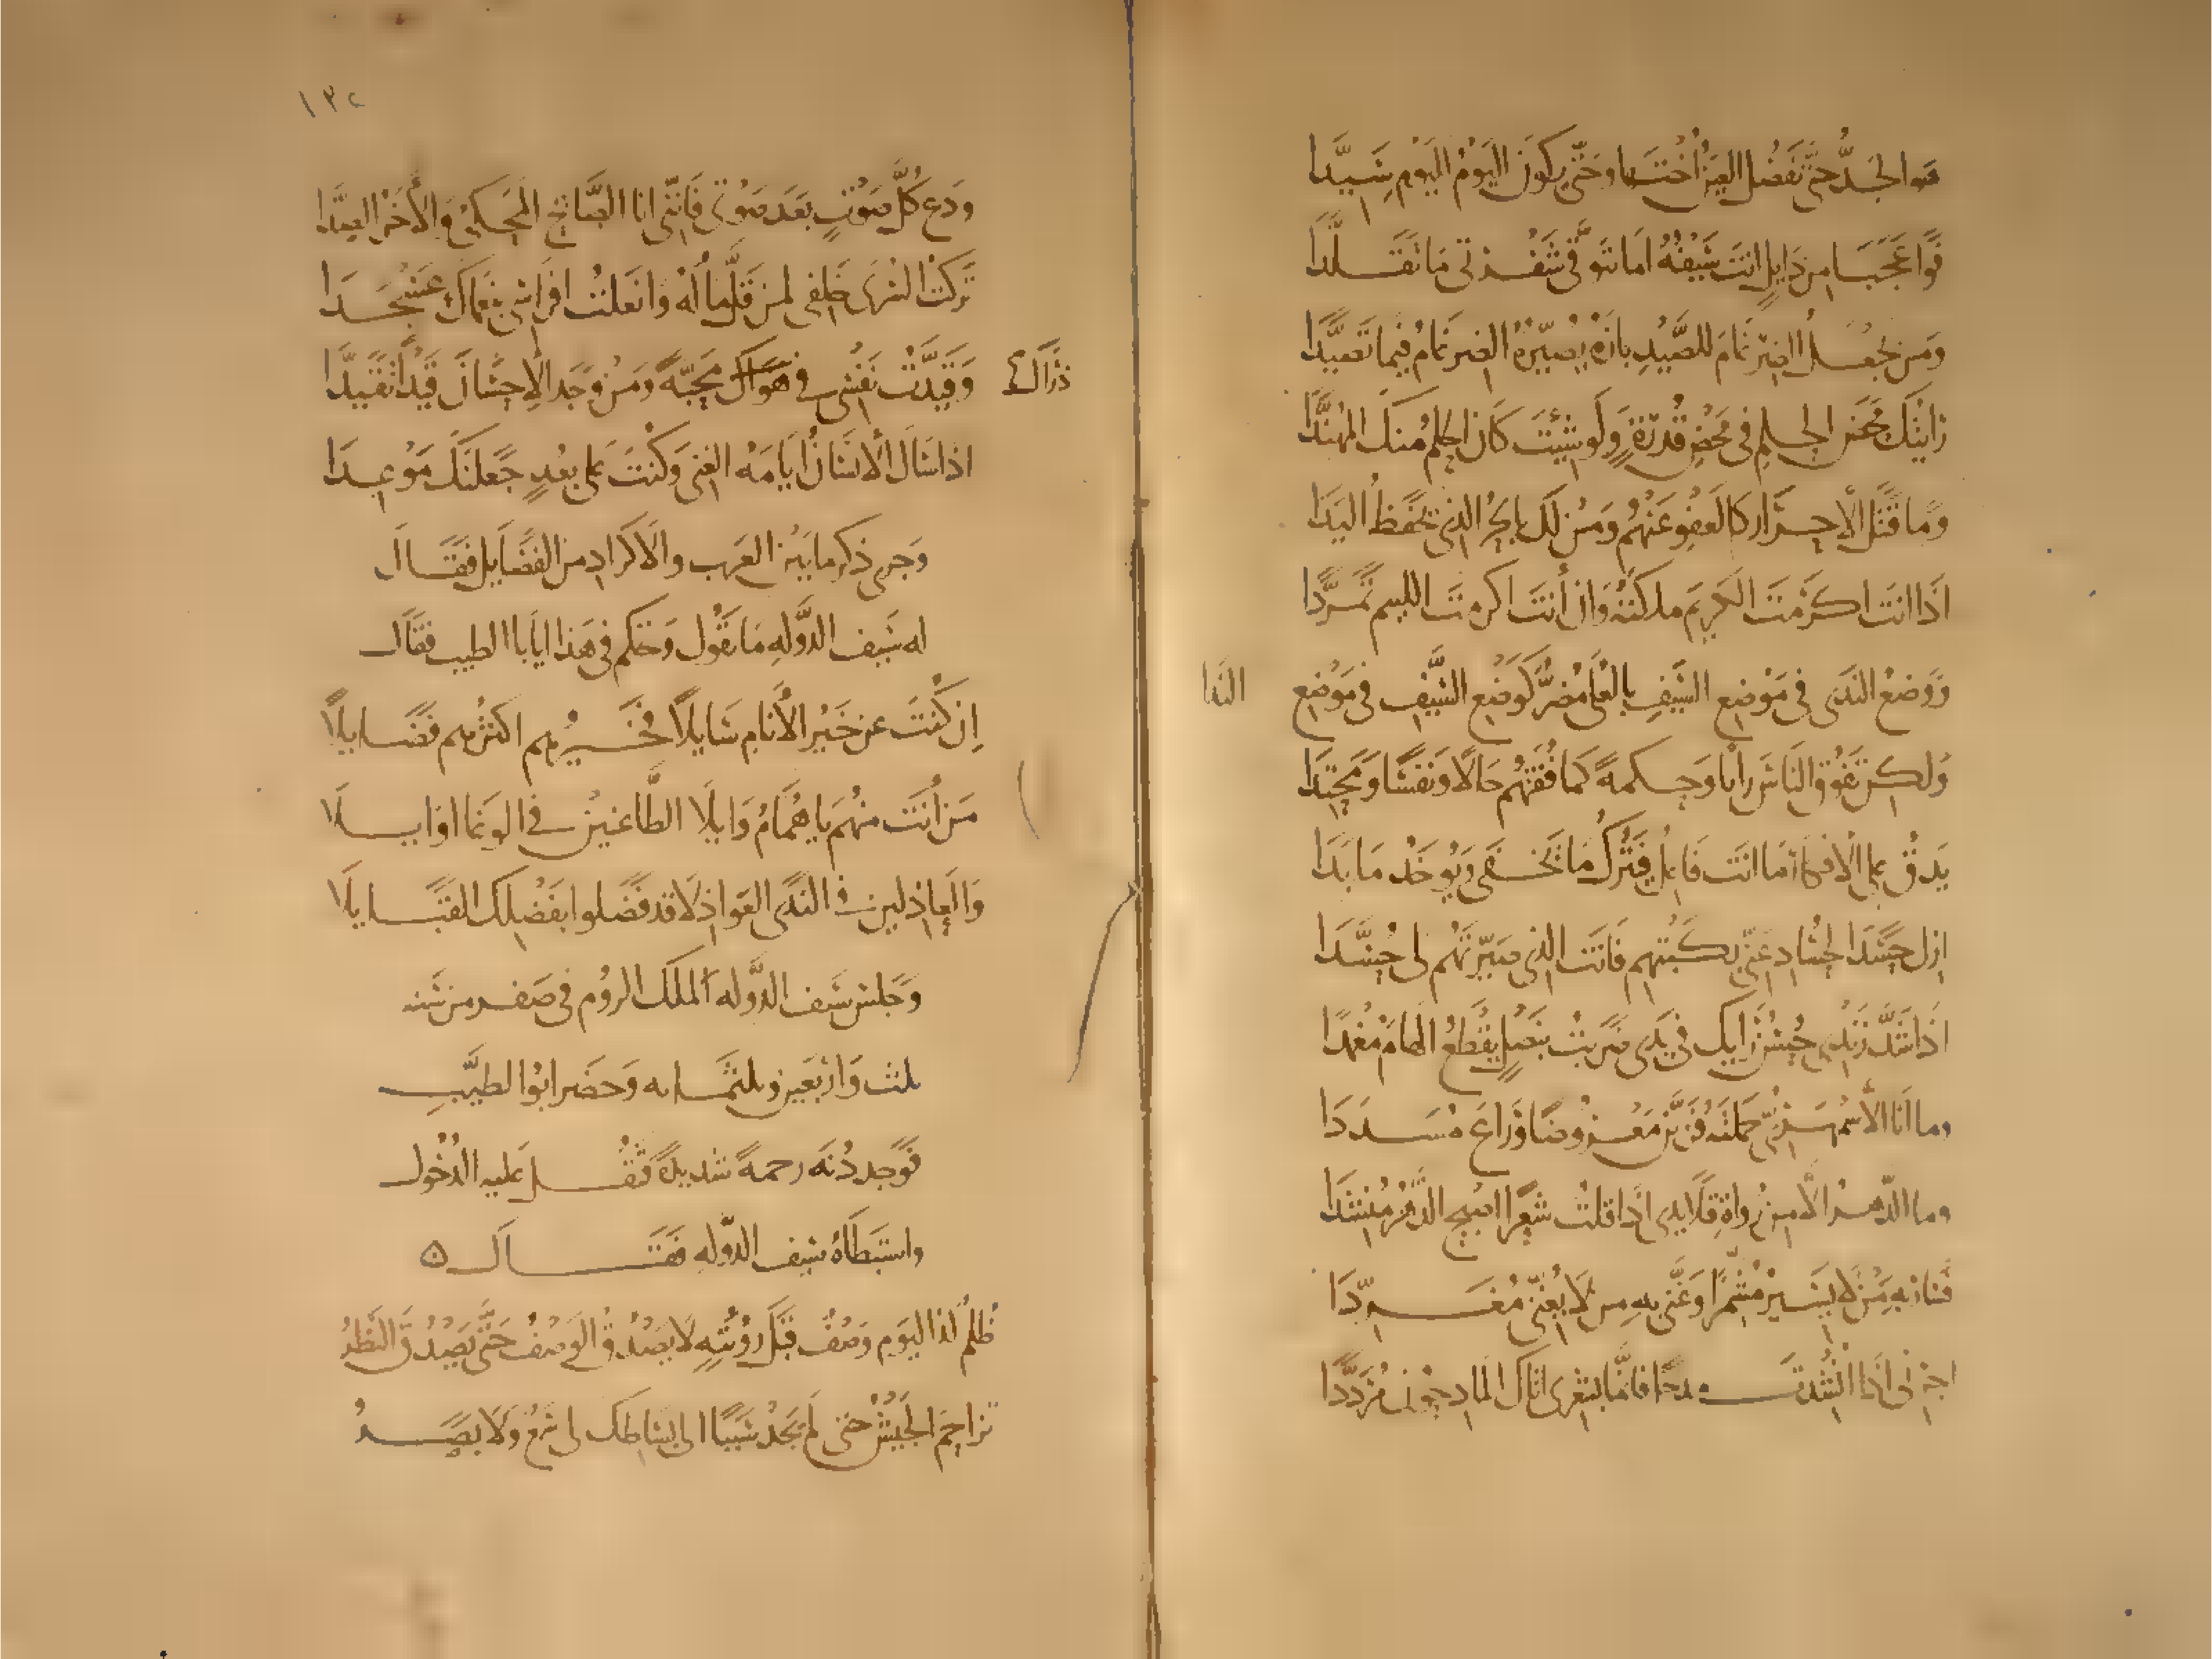 هو الجدّ حتى تفضل العين أختها وحتى يكون اليوم لليوم سيّدا
فوا عجبا من دايل انت سيفه اما يتوقى شفرتى ما تقلدا
ومن يجعل الضرغام للصيد بازه يصيّره الضرغام فيما تصيّدا
رايتك محض الحلم فى محض قدرة ولو شيت كان الحلم منك المهندا
وما قتل الاحرار كالعفو عنهم ومن لك بالحر الذى يحفظ اليدا
اذا انت اكرمت الكريم ملكته وان أنت اكرمت الليم تمردا
ووضع الندى فى موضع السيف بالعلى مضرّ كوضع السيف فى موضع الندا
ولكن تفوق الناس رايا وحكمة كما فقتهم حالا ونفسا ومحتدا
يدق على الافكار ما انت فاعل فيترك ما يخفى ويوخذ ما بدا
ازل حسد الحساد عنى بكبتهم فانت الذى صيرتهم لى حسدا
اذا شدّ زندى حسن رايك فى يدى ضربت بنصل يقطع الهام مغمدا
وما انا الا سمهرى حملته فزيّن معروضا وراع مسددا
وما الدهر الا من رواة قلايدى اذا قلت شعرا اصبح الدهر منشدا
فسار به من لا يسير مشمرا وغنى به من لا يغنى مغردا
اجزنى اذا انشدت مدحا فانما بشعرى اتاك المادحون مرددا
١٣٢
ودع كل صوت بعد صوتى فاننى انا الصايح المحكى والاخر الصدا
تركت السرى خلفى لمن قل ماله وانعلت افراسى بنعماك عسجدا
وقيدت نفسى فى هواك محبة ومن وجد الاحسان قيدا تقيدا
ذراك
اذا سال الانسان ايامه الغنى وكنت على بعد جعلنك موعدا
وجرى ذكر ما بين العرب والاكراد من الفضايل فقال
له سيف الدوله ما تقول وتحكم فى هذا يا ابا الطيب فقال
ان كنت عن خير الانام سايلا فخيرهم اكثرهم فضايلا
من أنت منهم يا همام وايلا الطاعنين فى الوغا اوايلا
والعاذلين فى الندى العواذلا قد فضلوا بفضلك القبايلا
وجلس سيف الدوله لملك الروم فى صفر من سنه
ثلث واربعين وثلثمايه وحضر ابوا الطيب
فوجد دنه رحمة شديدة فثقل عليه الدخول
واستبطاه سيف الدوله فقال ه
ظلم لذا اليوم وصف قبل رويته لا يصدق الوصف حتى يصدق النظر
تزاحم الجيش حتى لم يجد سببا الى بساطك لى سمع ولا بصر